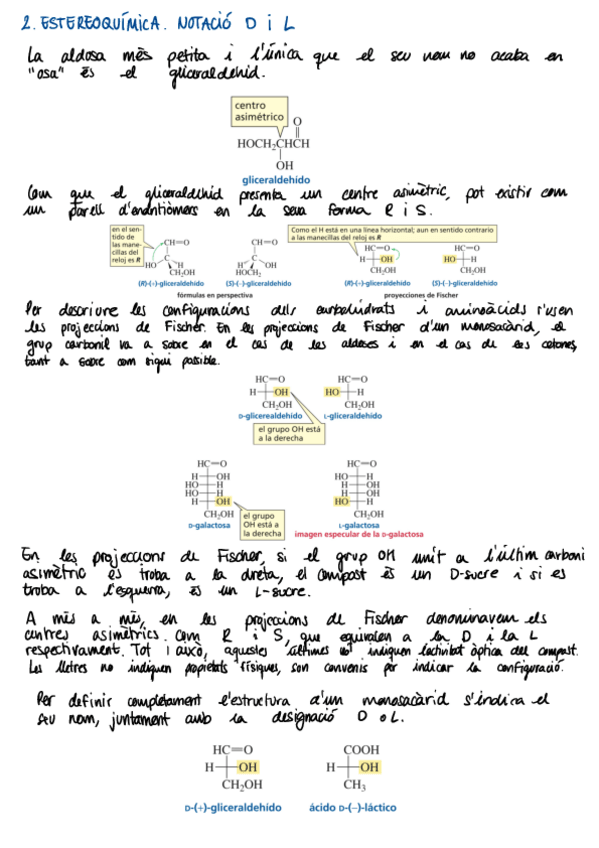 2. ESTEREOQUÍMICA. NOTACIÓ D i L
La aldosa més petita i l'única que el seu nom no acaba en
"osa" és el gliceraldehid.
centro
asimétrico
O
HOCH₂CHCH
OH
gliceraldehído
Com que el gliceraldehid presenta un centre asimètric, pot existir com
un parell d'enantiòmers en la seva forma R i S.
en el sen-
tido de
las mane-
cillas del
reloj es R
CH=O
C
HO H
CH₂OH
(R)-(+)-gliceraldehído
CH=O
C
H OH
HOCH₂
(S)-(–)-gliceraldehído
fórmulas en perspectiva
Como el H está en una línea horizontal; aun en sentido contrario
a las manecillas del reloj es R
HC=O
H OH
CH₂OH
(R)-(+)-gliceraldehído
HC=O
HO H
CH₂OH
(S)-(–)-gliceraldehído
proyecciones de Fischer
Per descriure les configuracions dels carbohidrats i aminoàcids s'usen
les projeccions de Fischer. En les projeccions de Fischer d'un monosacàrid, el
grup carbonil va a sobre en el cas de les aldoses i en el cas de les cetones,
tant a sobre com sigui possible.
HC=O
H OH
CH₂OH
D-glicerealdehído
HC=O
HO H
CH₂OH
L-gliceraldehído
el grupo OH está
a la derecha
HC=O
H OH
HO H
HO H
H OH
CH₂OH
D-galactosa
el grupo
OH está a
la derecha
HC=O
HO H
H OH
H OH
HO H
CH₂OH
L-galactosa
imagen especular de la D-galactosa
En les projeccions de Fischer, si el grup OH unit a l'últim carboni
asimètric es troba a la dreta, el compost és un D-sucre i si es
troba a l'esquerra, és un L-sucre.
A més a més, en les projeccions de Fischer denominavem els
centres asimètrics com R i S, que equivalen a la D i la L
respectivament. Tot i això, aquestes últimes no indiquen l'activitat òptica del compost.
Les lletres no indiquen propietats físiques, son convenis per indicar la configuració.
Per definir completament l'estructura d'un monosacàrid s'indica el
seu nom, juntament amb la designació D o L.
HC=O
H OH
CH₂OH
D-(+)-gliceraldehído
COOH
H OH
CH₃
ácido D-(–)-láctico